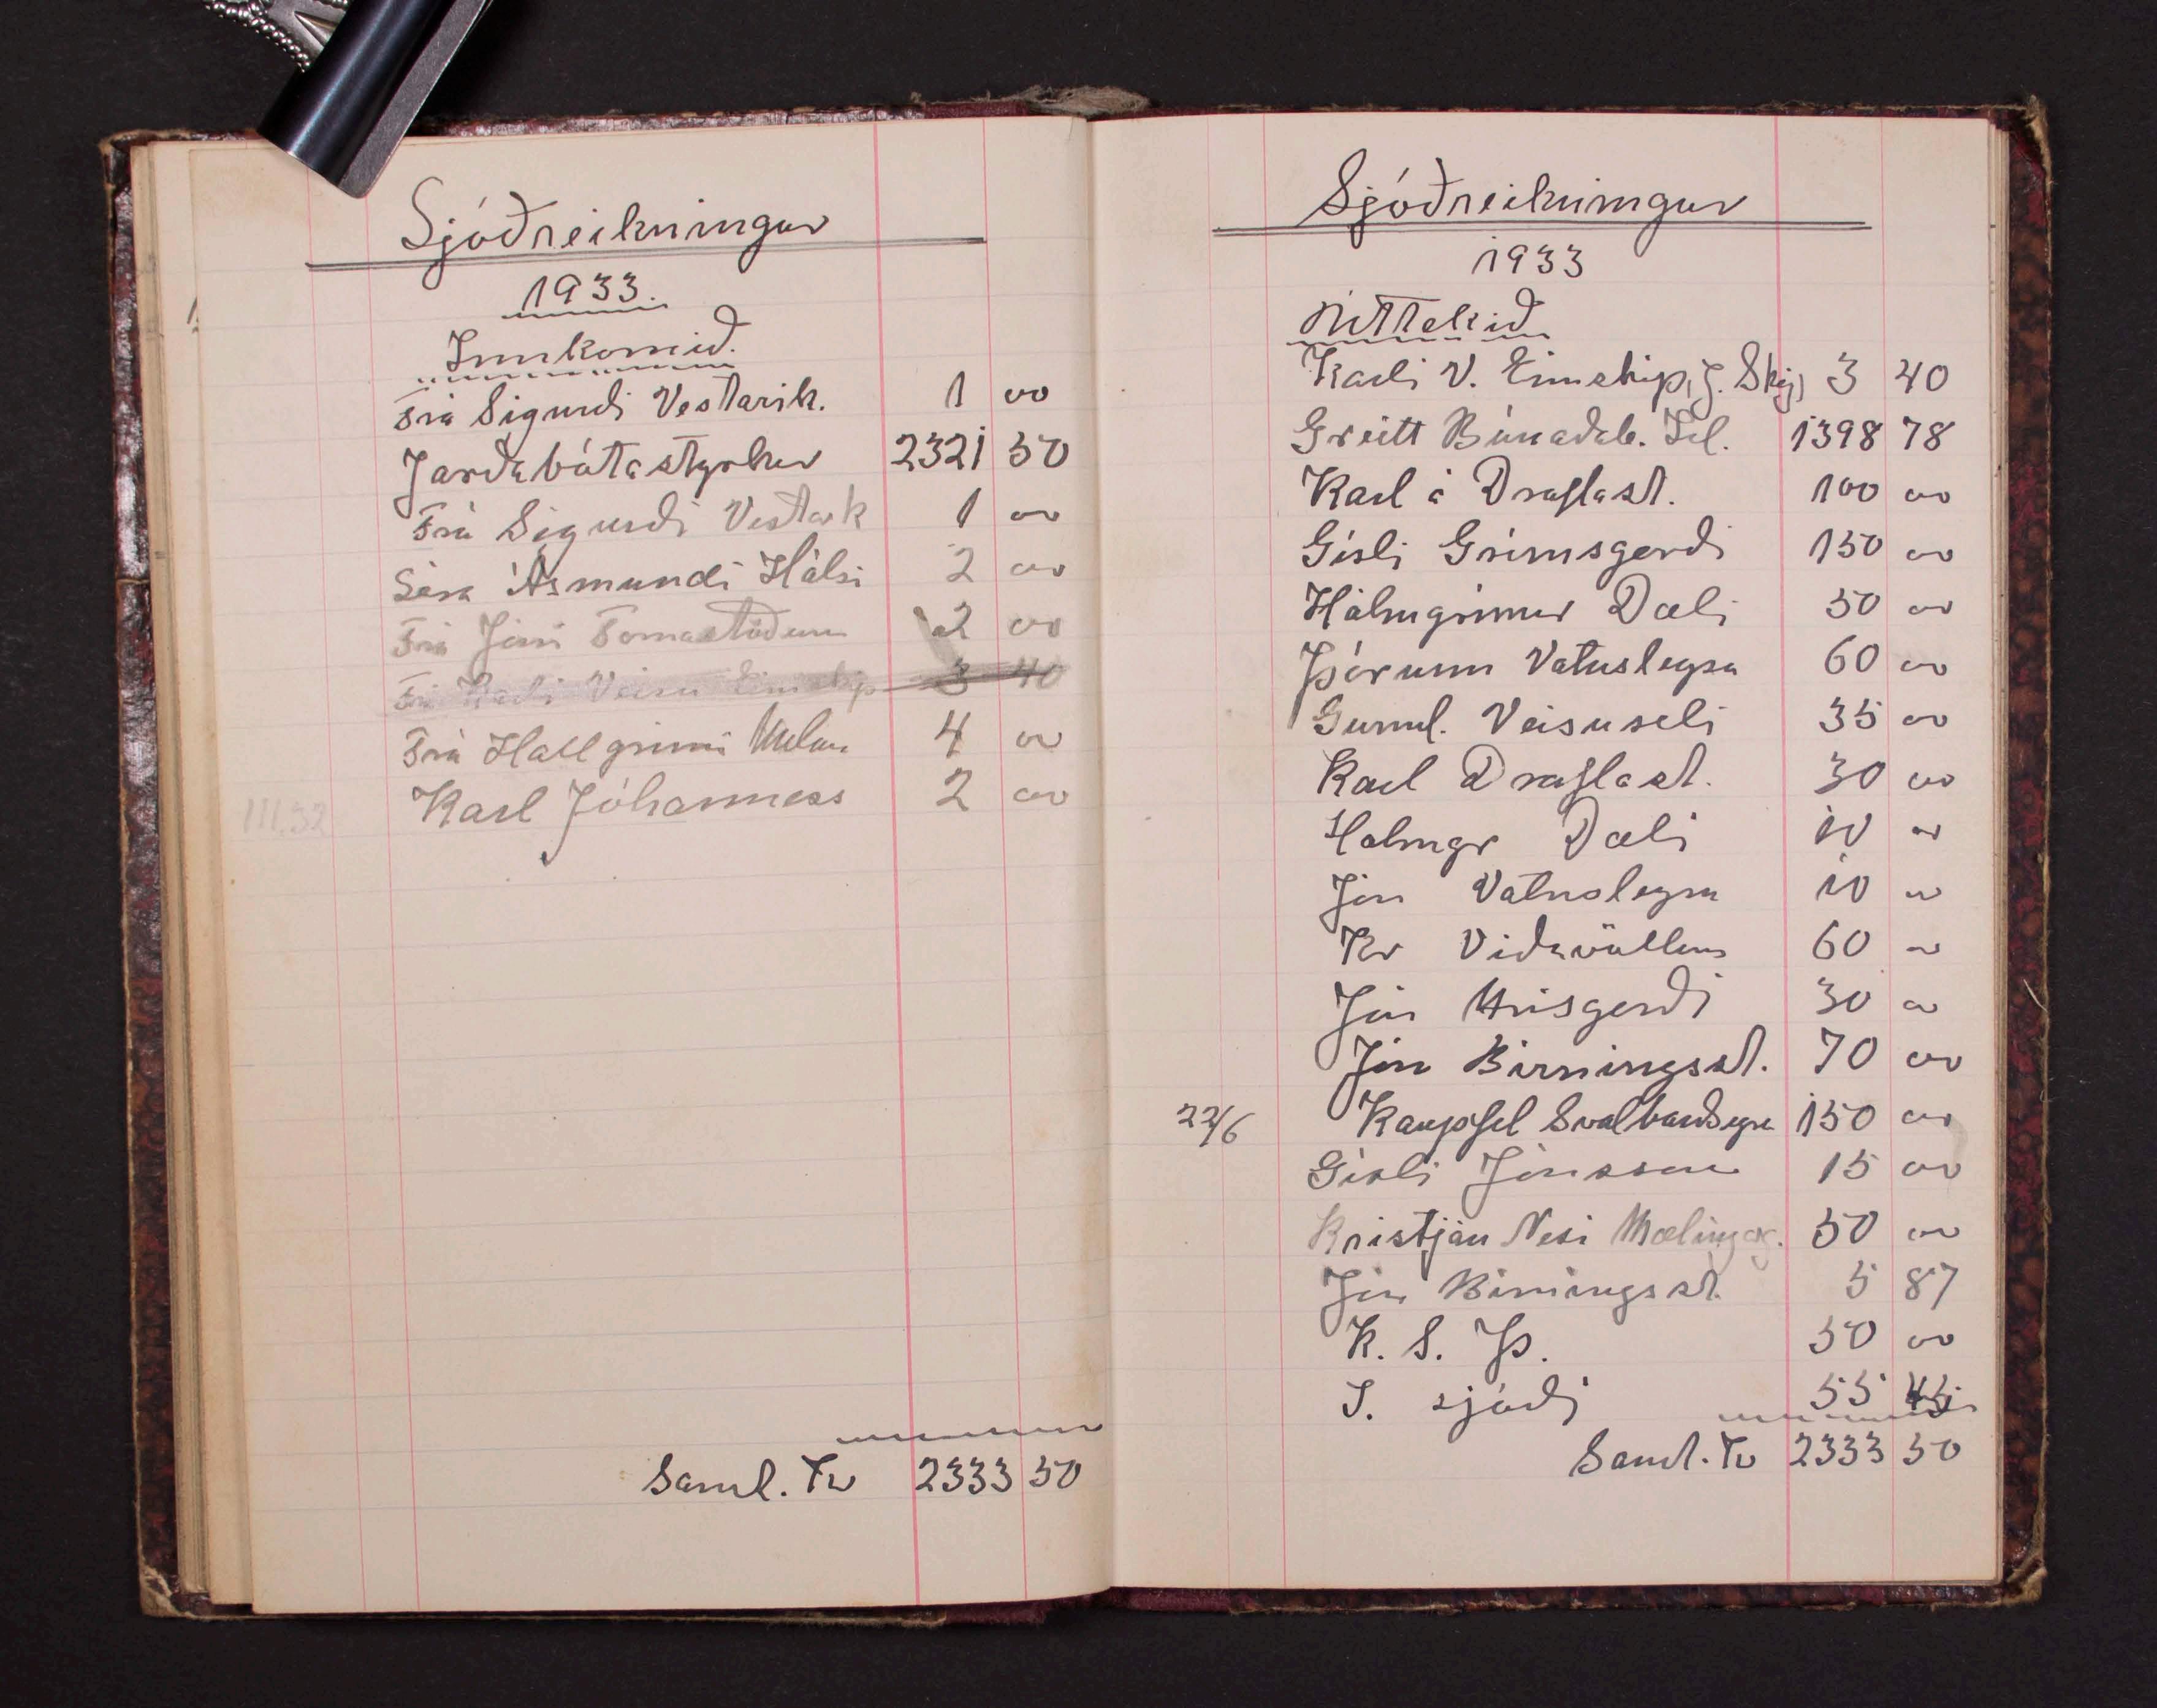 Sjóðreikningur
1933.
Innkomið.
Frá Sigurði Vestarik. 1 00
Jarðabótastyrkur 2321 50
Frá Sigurði Vestark 1 00
Séra Ásmundi Hálsi 2 00
Frá Jóni Fornastöðum 2 00
Frá Karli Veisu Eimskip 3 40
Frá Hallgrími Melum 4 00
Karl Jóhanness 2 00
Saml. Kr 2333 50
Sjóðreikningur
1933
Úttekið
Karli V. Eimskip, J. Skj, 3 40
Greitt Búnaðab. Fél. 1398 78
Karl á Draflast. 100 00
Gísli Grímsgerði 150 00
Hólmgrímur Dæli 50 00
Þórunn Vatnsleysu 60 00
Gunnl. Veisuseli 35 00
Karl Draflast. 30 00
Holmgr Dæli 10 00
Jón Vatnsleysu 10 00
Kr Víðivöllum 60 00
Jón Hrísgerði 30 00
Jón Birningsst. 70 00
22/6 Kaupfel Svalbarðseyra 150 00
Gísli Jónsson 15 00
Kristján Nesi Mælingar. 50 00
Jón Birningsst. 5 87
K. S. Þ. 50 00
Í. sjóði 55 45
Saml. Kr 2333 50